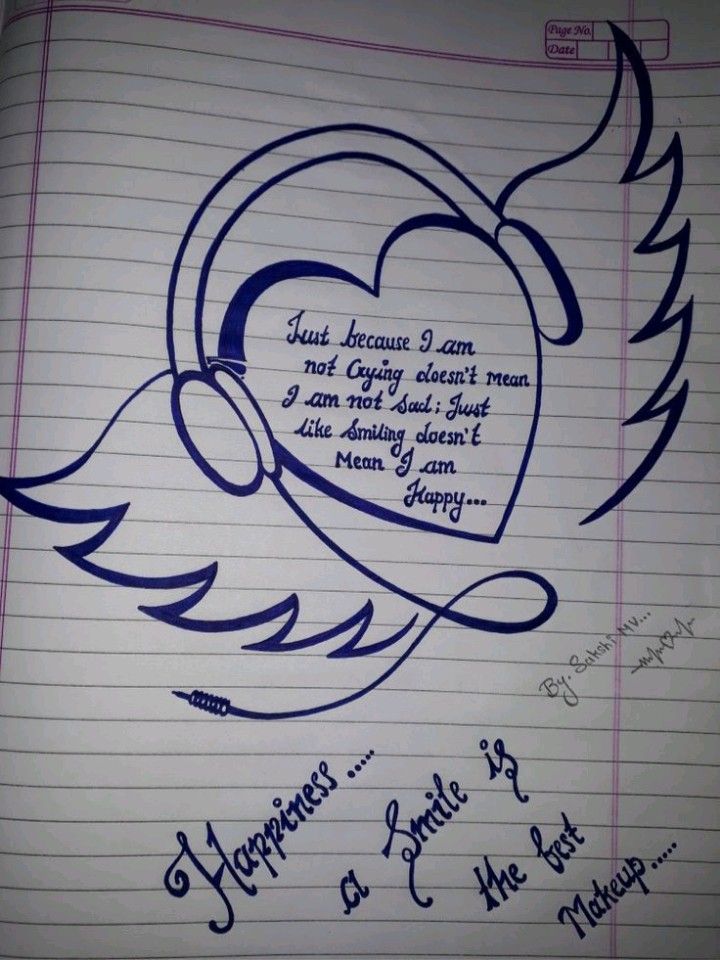 Page No.
Date
Just because I am
not Crying doesn't mean
I am not Sad; Just
like Smiling doesn't
Mean I am
Happy...
By. Sakshi MV...
Happiness.....
a Smile is
the best
Makeup.....